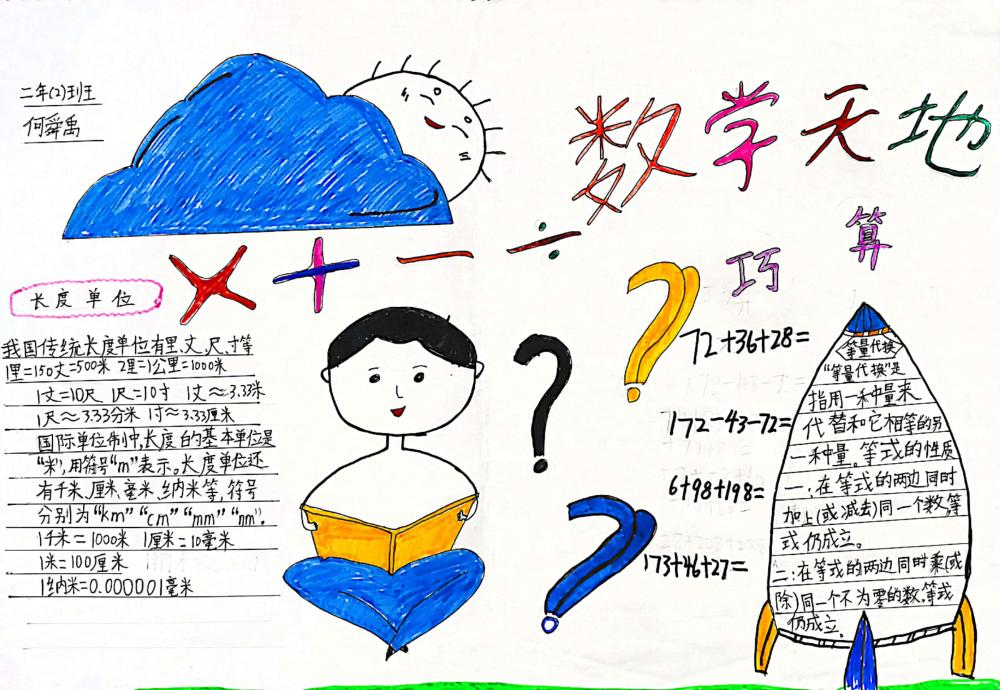 二年(2)班
何舜禹
数学天地
× + − ÷
巧算
长度单位
我国传统长度单位有里、丈、尺、寸等
1里=150丈=500米 2里=1公里=1000米
1丈=10尺 1尺=10寸 1丈≈3.33米
1尺≈3.33分米 1寸≈3.33厘米
国际单位制中,长度的基本单位是
“米”,用符号“m”表示。长度单位还
有千米、厘米、毫米、纳米等,符号
分别为“km”“cm”“mm”“nm”。
1千米=1000米 1厘米=10毫米
1米=100厘米
1纳米=0.000001毫米
72+36+28=
172-43-72=
6+98+198=
173+46+27=
等量代换
“等量代换”是
指用一种量来
代替和它相等的另
一种量。等式的性质
一:在等式的两边同时
加上(或减去)同一个数,等
式仍成立。
二:在等式的两边同时乘(或
除)同一个不为零的数,等式
仍成立。